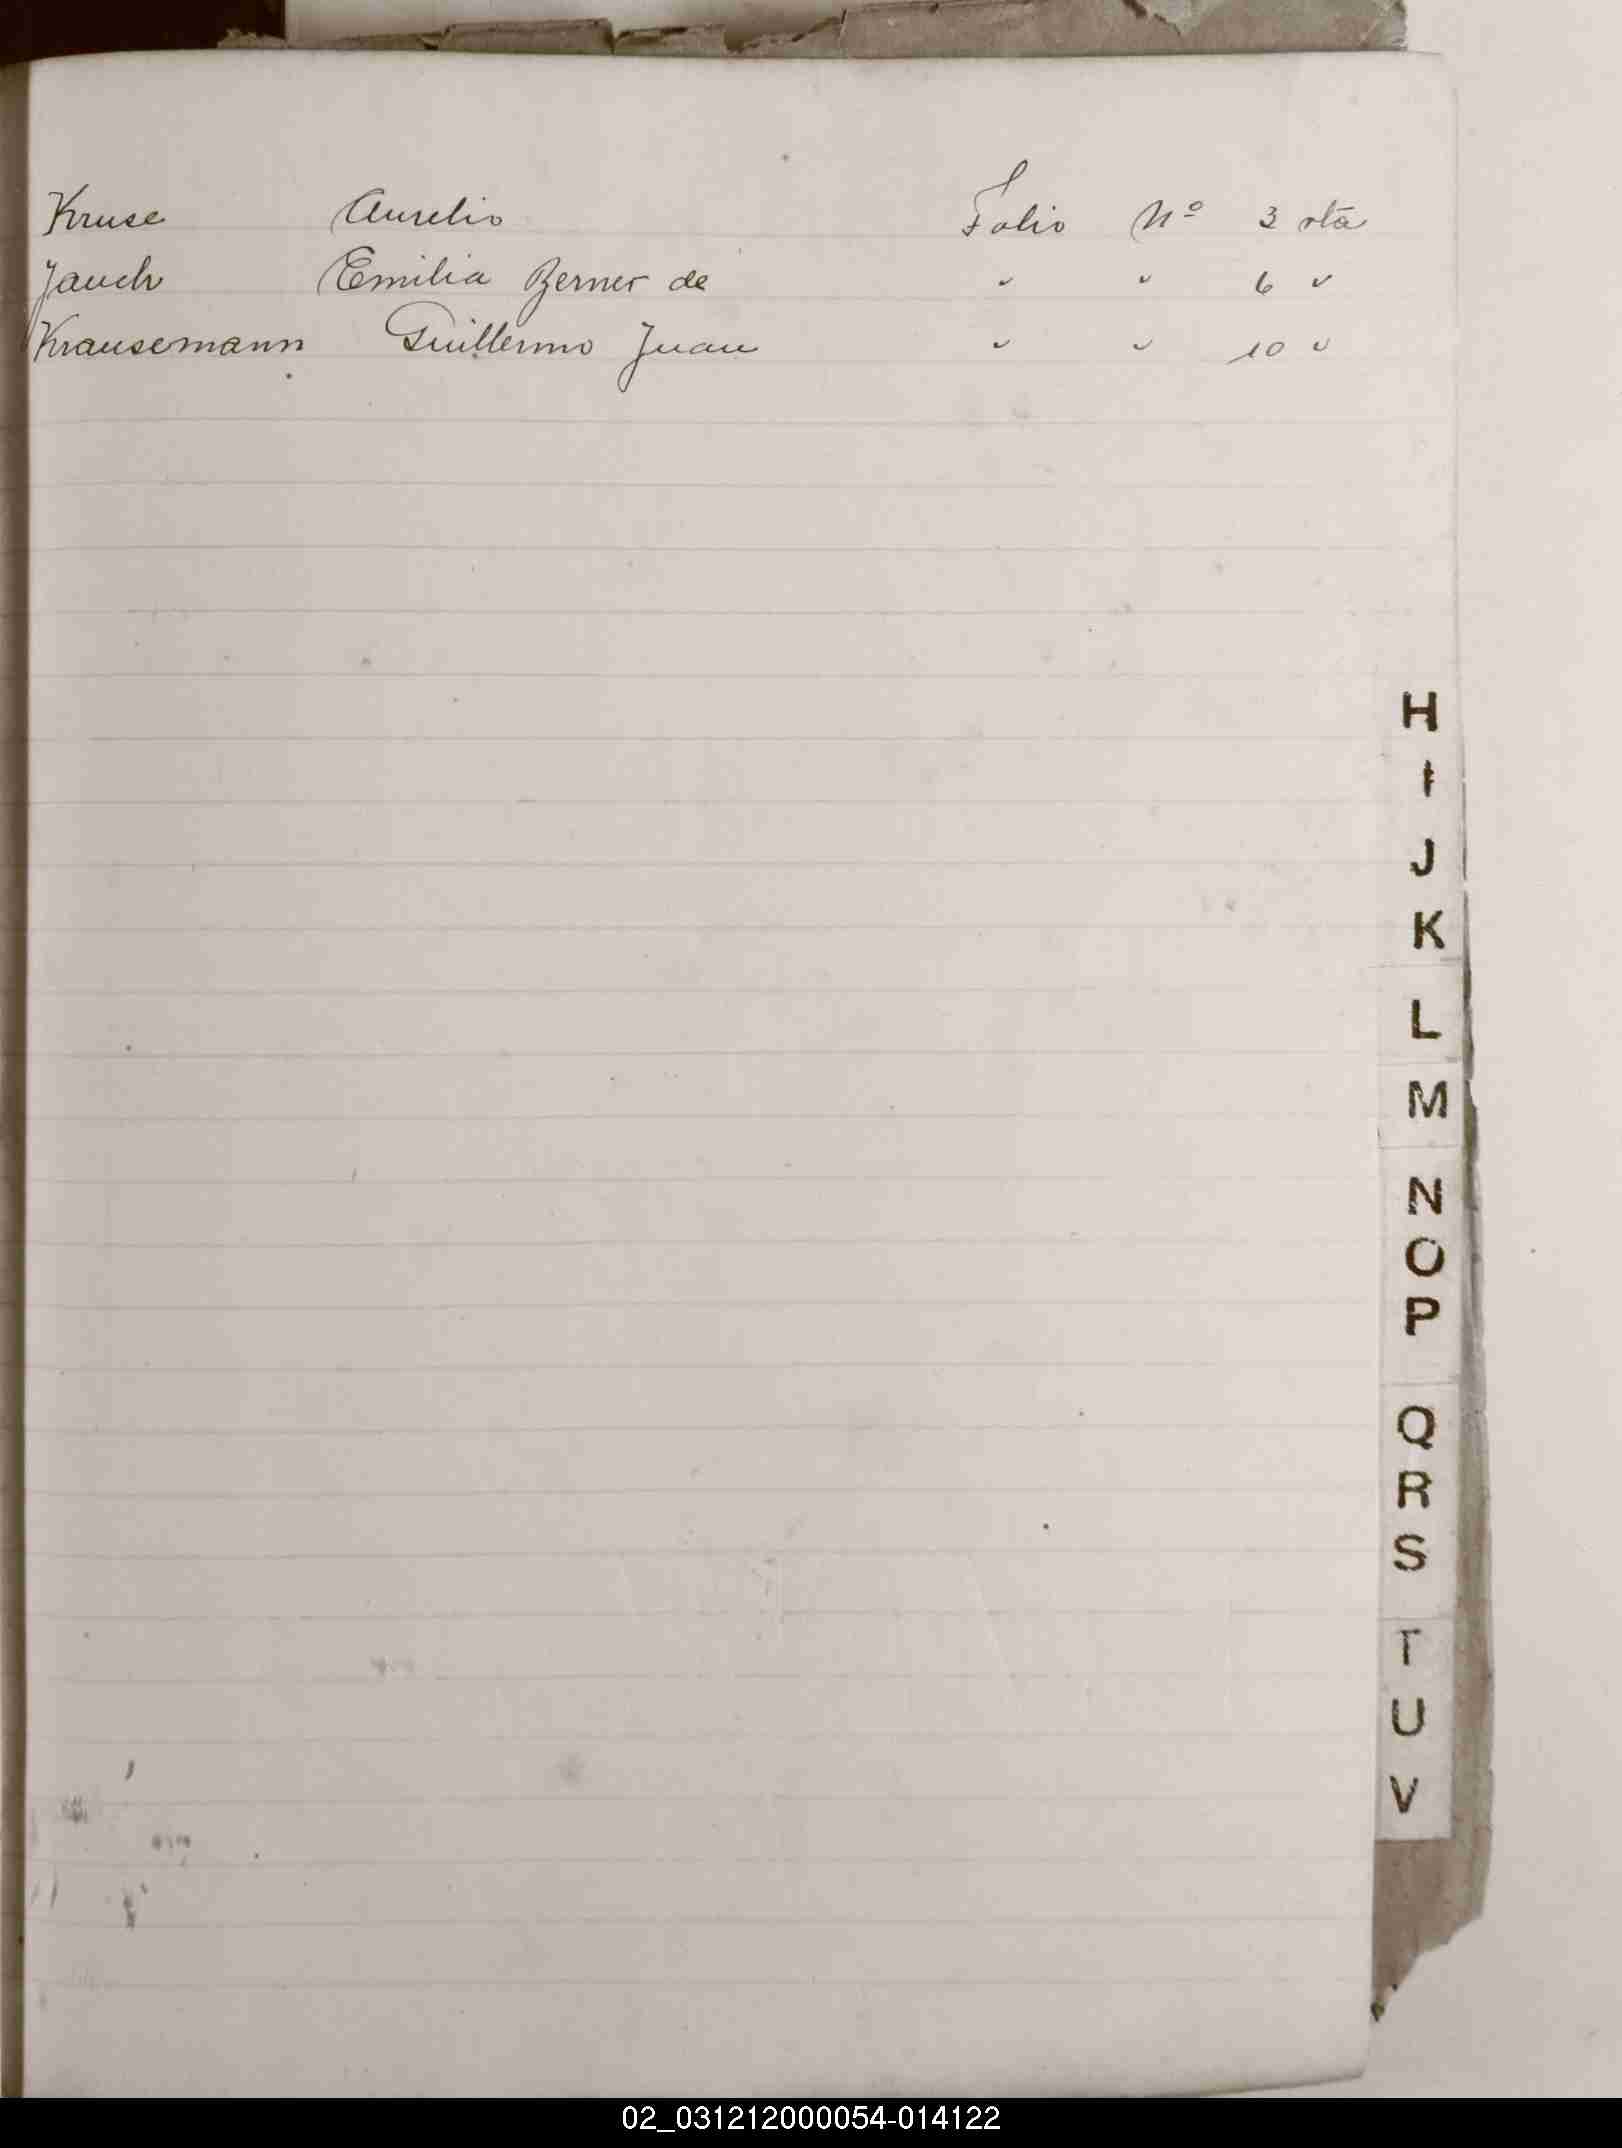 Kruse Aurelio Folio Nº 3 vta
Jauch Emilia Berner de " " 6 "
Krausemann Guillermo Juan " " 10 "
H
I
J
K
L
M
N
O
P
Q
R
S
T
U
V
02_031212000054-014122